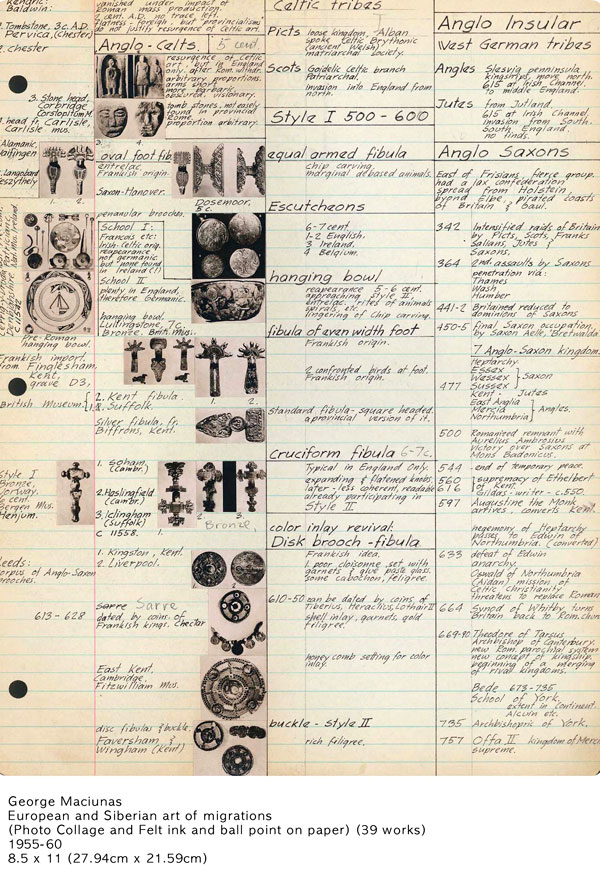 Kendric:
Baldwin:
Tombstone, 3c. A.D.
Pervica, (Chester)
chester
3. Stone head,
Corbridge,
Corstopitum M.
4. head fr. Carlisle,
Carlisle mus.
Alamanic,
Langobard
Keszthely
1. 2.
c. 1592
Pre-Roman
hanging bowl.
Frankish import.
from Finglesham,
Kent.
grave D3,
British Museum
Style I
Bronze,
Norway.
6 cent.
Bergen Mus.
Henjum.
Leeds:
corpus of Anglo-Saxon
brooches.
613-628
vanished under impact of
Roman mass production.
cent. A.D. no trace, left.
flatness - foreign, but provincialism,
do not justify resurgence of celtic art.
Anglo-Celts. 5 cent.
resurgence of Celtic
art, but in England
only, after Rom. withdr.
arbitrary proportions.
more barbaric,
obscured, visionary.
tomb stones, not easily
found in provincial
Rome.
proportion arbitrary.
3. 4.
oval foot fib.
entrelac
Frankish origin.
Saxon-Hanover.
Dosemoor,
5c.
penanular brooches.
School I:
Francois etc:
Irish-celtic orig.
reapearance
not germanic
but none found
in Ireland (!)
School II
plenty in England,
therefore Germanic.
hanging bowl.
Lullingstone, 7c.
Bronze. Brit. Mus.
1. 2.
1. Kent fibula.
2. Suffolk,
silver fibula, fr.
Biffrons, Kent.
1. Soham,
(Cambr.)
2. Haslingfield
(Cambr.)
3. Icklingham
(Suffolk)
c 11558.
1. 2. 3.
Bronze,
1. Kingston, Kent.
2. Liverpool.
1 2
sarre Sarre
dated by coins of
Frankish kings. Chlotar
East Kent.
Cambridge,
Fitzwilliam Mus.
disc fibulas & buckle.
Faversham &
Wingham (Kent)
Celtic tribes
Picts loose kingdom, Alban
spoke Celtic Brythonic
(ancient Welsh)
matriarchal society.
Scots Goidelic Celtic branch
Patriarchal.
invasion into England from
north.
Style I 500-600
equal armed fibula
chip carving.
marginal debased animals.
Escutcheons
6-7 cent.
1-2 English.
3 Ireland.
4 Belgium.
hanging bowl
reapearance 5-6 cent.
approaching style II.
entrelac, rites of animals
spirals, etc.
lingering of Chip carving.
fibula of even width foot
Frankish origin.
2 confronted birds at foot.
Frankish origin.
standard fibula- square headed.
a provincial version of it.
Cruciform fibula 6-7c.
Typical in England only.
expanding & flatened knobs.
later - less coherent, readable
already participating in
Style II
color inlay revival:
Disk brooch-fibula
Frankish idea.
1. poor cloisonne, set with
garnets & glue paste glass.
some cabochon, feligree.
610-50 can be dated by coins of
Tiberius, Heraclius, Lothair II
shell inlay, garnets, gold
filigree.
honey comb setting for color
inlay.
buckle - style II
rich filigree.
Anglo Insular
West German tribes
Angles Slesvig penninsula,
kingship, more north.
615 at Irish Channel,
to middle England.
Jutes from Jutland.
615 at Irish Channel.
invasion from South.
South England.
no finds.
Anglo Saxons
East of Frisians, fierce group.
had a lax confederation
spread from Holstein
byond Elbe, pirated coasts
of Britain & Gaul.
342 Intensified raids of Britain
by Picts, Scots, Franks
Salians, Jutes &
Saxons.
364 2nd. assaults by Saxons
penetration via:
Thames
Wash
Humber
441-2 Britained reduced to
dominions of Saxons
450-5 final Saxon occupation,
by Saxon Aelle, Bretwalda
7 Anglo-Saxon kingdom.
Heptarchy
Essex
Wessex Saxon
477 Sussex
Kent - Jutes
East Anglia
Mercia Angles,
Northumbria
500 Romanized remnant with
Aurelius Ambrosius
victory over Saxons at
Mons Badonicus.
544 -end of temporary peace.
560 supremacy of Ethelbert
616 of Kent.
Gildas-writer - c.550.
597 Augustine the Monk
arrives, converts Kent.
hegemony of Heptarchy
passes to Edwin of
Northumbria. (converted)
633 defeat of Edwin
anarchy.
Oswald of Northumbria
(Aidan) mission, of
Celtic christianity
threatens to replace Roman
664 Synod of Whitby, turns
Britain back to Rom. church
669-90 Theodore of Tarsus
Archbishop of Canterbury.
new Rom. parochial system
new concept of kingship
beginning of a merging
of rival kingdoms.
Bede 673-735
School of York.
extent in Continent.
Alcuin etc.
735 Archbishopric of York.
757 Offa II kingdom of Merc
supreme.
George Maciunas
European and Siberian art of migrations
(Photo Collage and Felt ink and ball point on paper) (39 works)
1955-60
8.5 x 11 (27.94cm x 21.59cm)